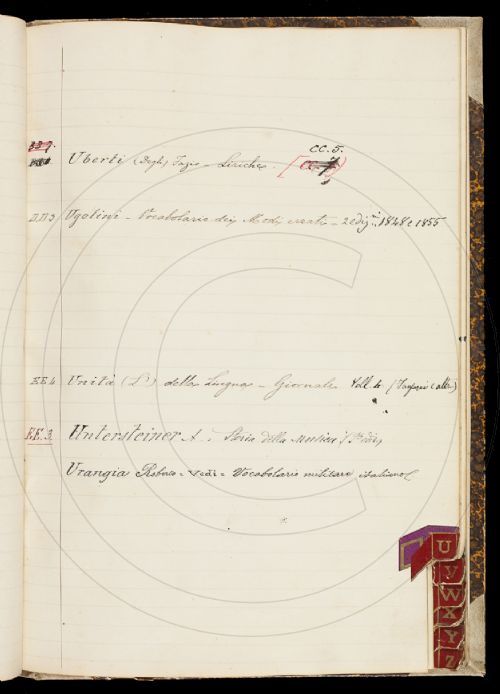 CC. 5.
Uberti (Degli) Fazio – Liriche.
DD 3 Ugolini – Vocabolario dei Modi errati – 2 ediz. 1848 e 1855
EE 4 Unità (L') della Lingua – Giornale Voll. 4
EE. 3. Untersteiner A. : Storia della Musica
Urangia – Vedi – Vocabolario militare italiano
U
y
W
X
Y
Z